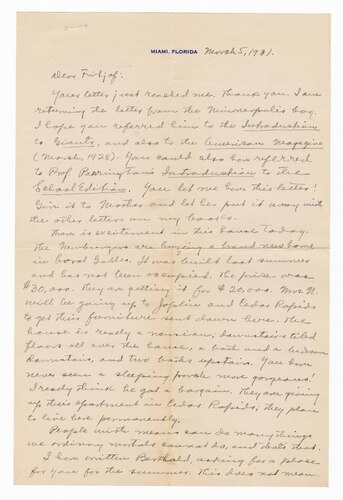 MIAMI, FLORIDA March 5, 1931.
Dear Fritjof:
Your letter just reached me. Thank you. I am
returning the letter from the Minneapolis boy.
I hope you referred him to the Introduction
to Giants, and also to the American Magazine
(March, 1928). You could also have referred
to Prof Parrington's Introduction to the
School Edition. You let me have this letter!
Give it to Mother and let her put it away with
the other letters on my books.
There is excitement in this house today.
The Newbergers are buying a brand new home
in Coral Gables. It was built last summer
and has not been occupied. The price was
$30,000. They are getting it for $20,000. Mrs. N.
will be going up to Joplin and Cedar Rapids
to get their furniture sent down here. The
house is really a mansion, downstairs tiled
floors all over the house, a bath and a bedroom
downstairs, and two baths upstairs. You have
never seen a sleeping porch more gorgeous!
I really think he got a bargain. They are giving
up their apartment in Cedar Rapids; they plan
to live here permanently.
People with means can do many things
we ordinary mortals cannot do, and that's that.
I have written Berthold, asking for a place
for you for the summer. This does not mean